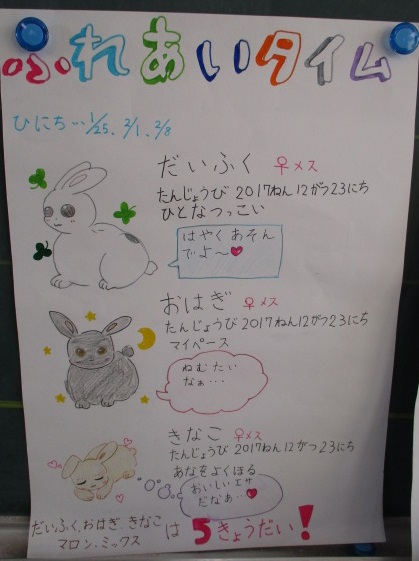 ふれあいタイム
ひにち…1/25、2/1、2/8
だいふく ♀メス
たんじょうび 2017ねん12がつ23にち
ひとなつっこい
はやくあそん
でよ〜♥
おはぎ ♀メス
たんじょうび 2017ねん12がつ23にち
マイペース
ねむたい
なぁ…
きなこ ♀メス
たんじょうび 2017ねん12がつ23にち
あなをよくほる
おいしいエサ
だなぁ…♥
だいふく、おはぎ、きなこ
マロン、ミックス
は5きょうだい!